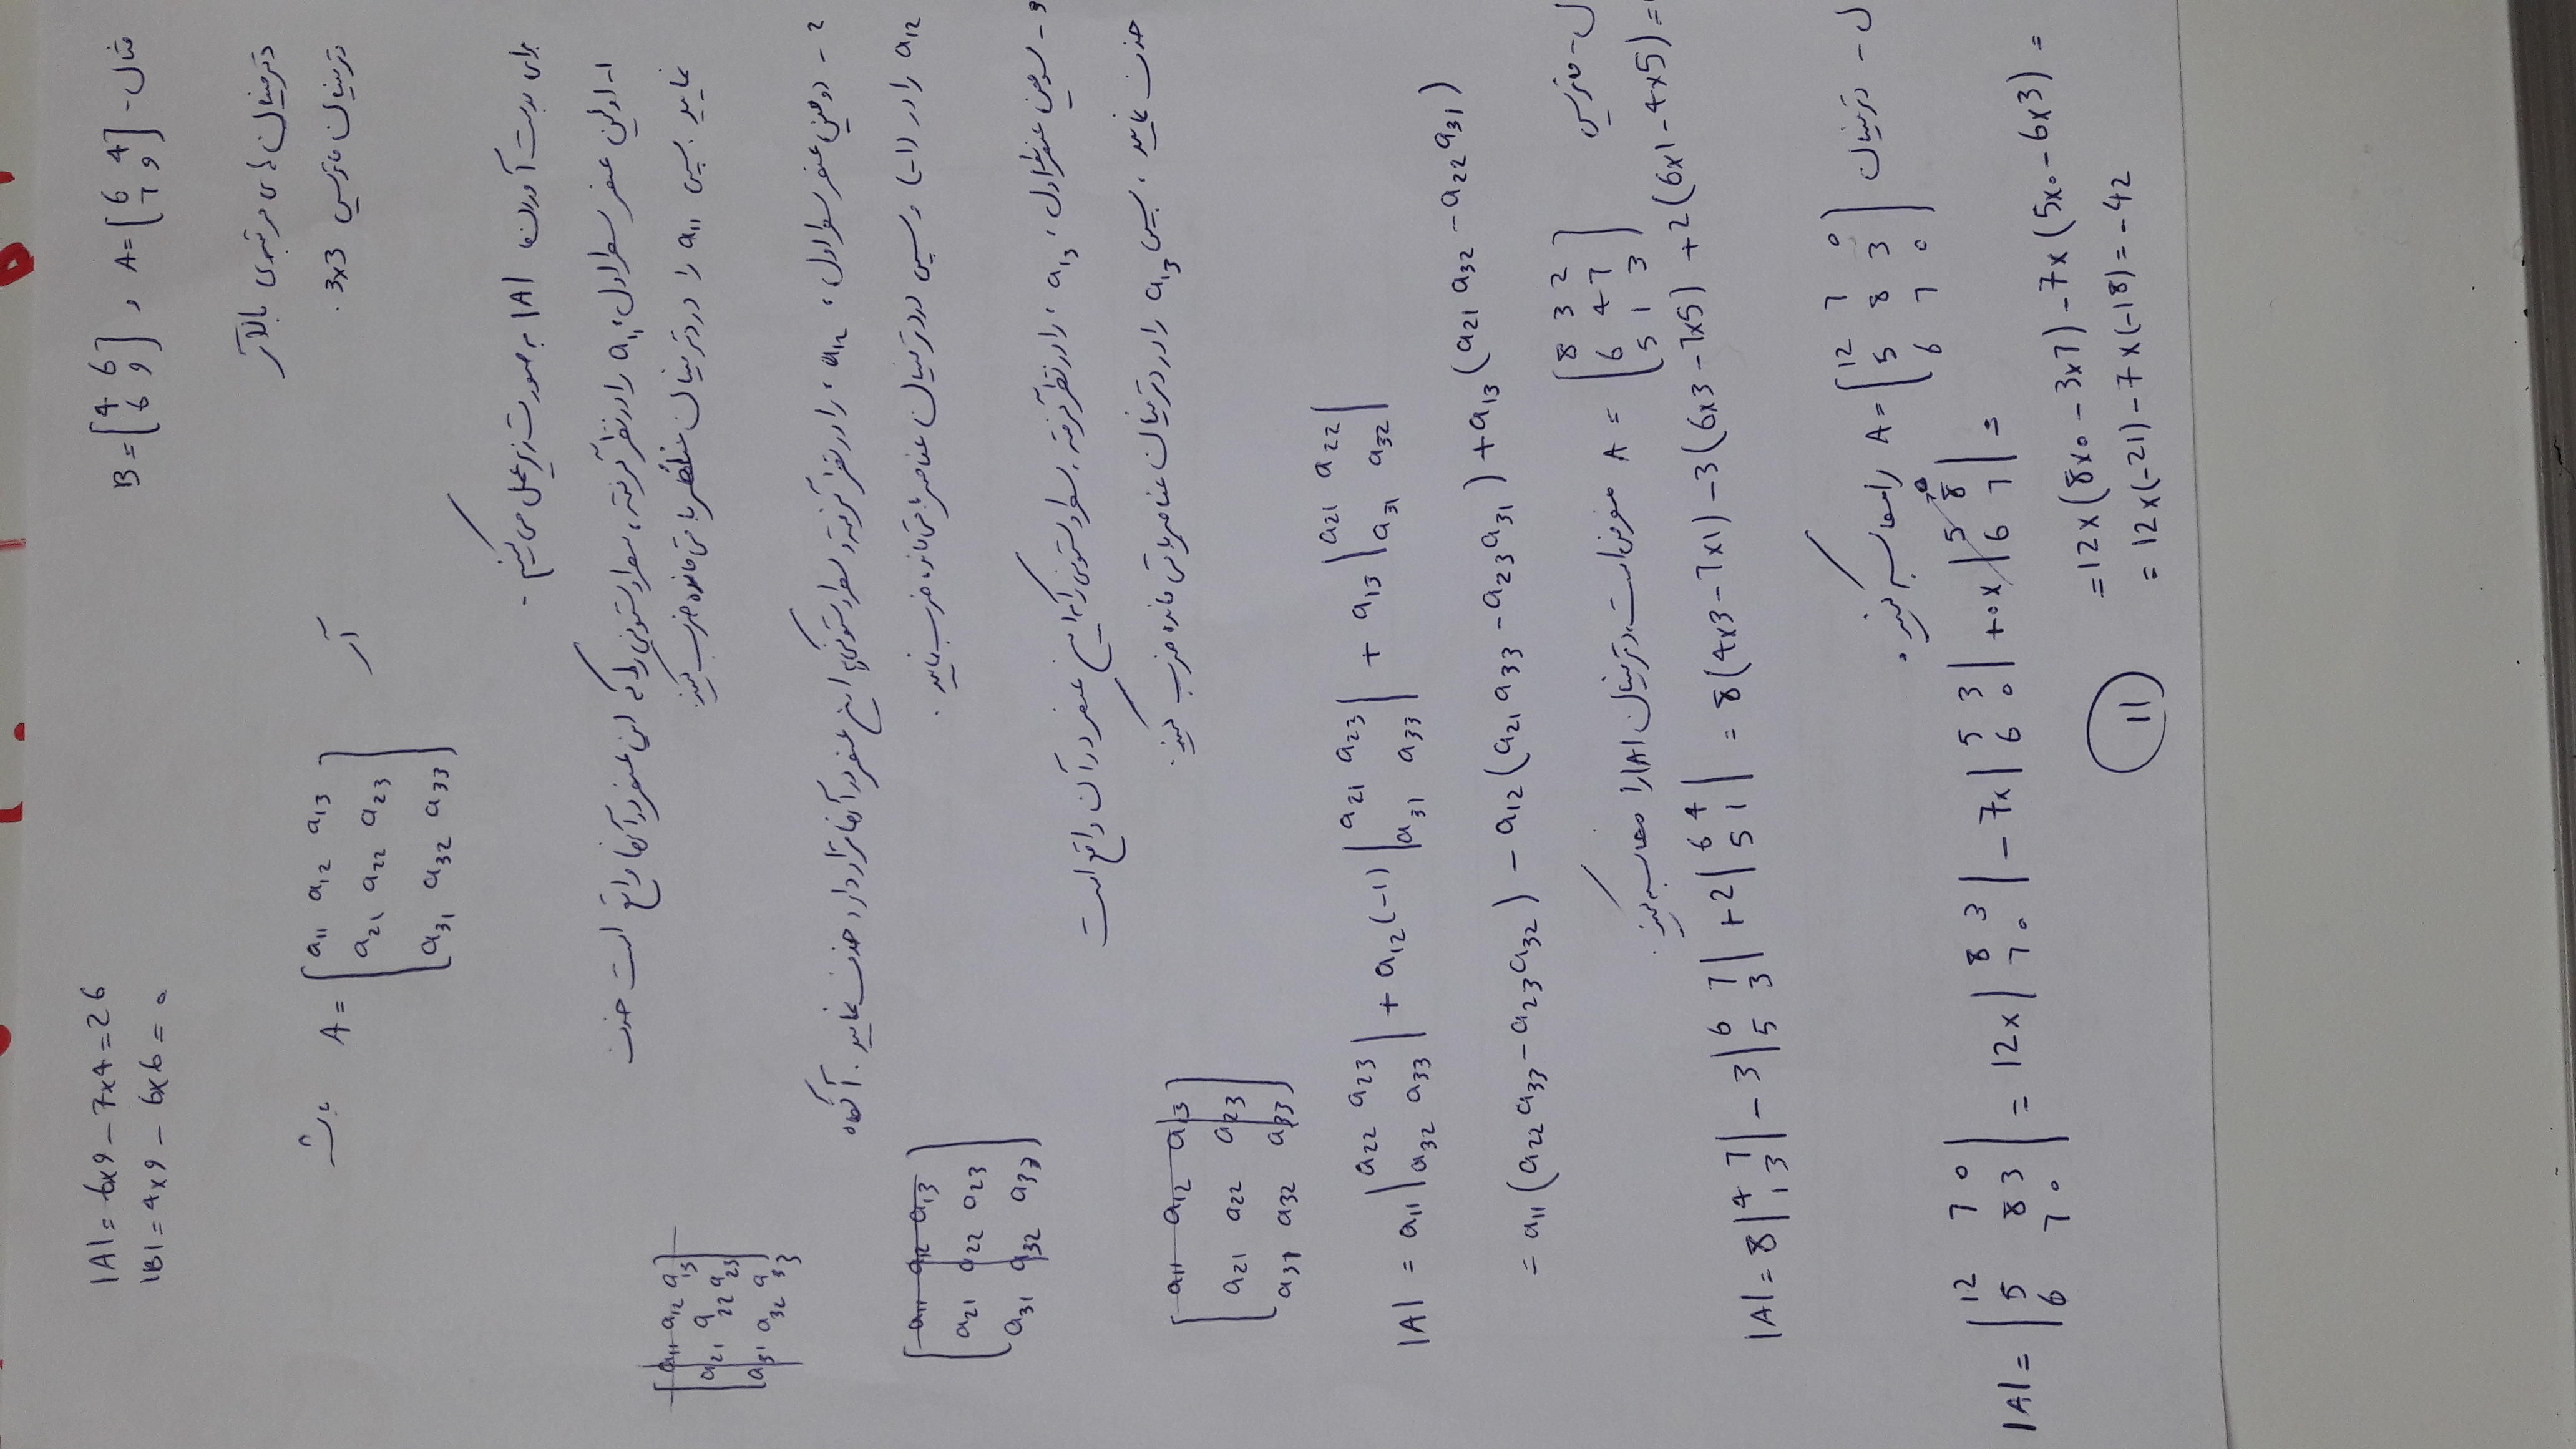 مثال - A = [6 4 7 9] , B = [4 6 6 9]
|A| = 6×9 - 7×4 = 26
|B| = 4×9 - 6×6 = 0
دترمینال های مرتبه‌ی بالاتر
دترمینال ماتریس 3×3 .
اگر A = [a11 a12 a13
a21 a22 a23
a31 a32 a33]
برای بدست آوردن |A| به صورت زیر عمل می کنیم -
1- اولین عنصر سطر اول، a11 را در نظر گرفته، سطر و ستونی را که این عنصر در آنها واقع است حذف
نمایید سپس a11 را در دترمینال عناصر باقی مانده ضرب کنید.
[a11 a12 a13
a21 a22 a23
a31 a32 a33]
2 - دومین عنصر سطر اول، a12، را در نظر گرفته و سطر و ستونی که این عنصر در آنها قرار دارد، حذف نمایید. آنگاه
a12 را در (-1) و سپس در دترمینال عناصر باقی مانده ضرب نمایید.
[a11 a12 a13
a21 a22 a23
a31 a32 a33]
- سومین عنصر سطر اول، a13، را در نظر گرفته، سطر و ستونی را که این عنصر در آن واقع است
حذف نمایید، سپس a13 را در دترمینال عناصر باقی مانده ضرب کنید.
[a11 a12 a13
a21 a22 a23
a31 a32 a33]
|A| = a11 |a22 a23 a32 a33| + a12(-1) |a21 a23 a31 a33| + a13 |a21 a22 a31 a32|
= a11(a22 a33 - a23 a32) - a12(a21 a33 - a23 a31) + a13(a21 a32 - a22 a31)
ل- ماتریس A = [8 3 2 6 4 7 5 1 3] مفروض است، دترمینال |A| را محاسبه کنید.
|A| = 8|4 7 1 3| - 3|6 7 5 3| + 2|6 4 5 1| = 8(4×3 - 7×1) - 3(6×3 - 7×5) + 2(6×1 - 4×5) =
ل - دترمینال A = [12 7 0 5 8 3 6 7 0] را محاسبه کنید.
|A| = |12 7 0 5 8 3 6 7 0| = 12×|8 3 7 0| - 7×|5 3 6 0| + 0×|5 8 6 7| =
= 12×(8×0 - 3×7) - 7×(5×0 - 6×3) =
= 12×(-21) - 7×(-18) = -42
11